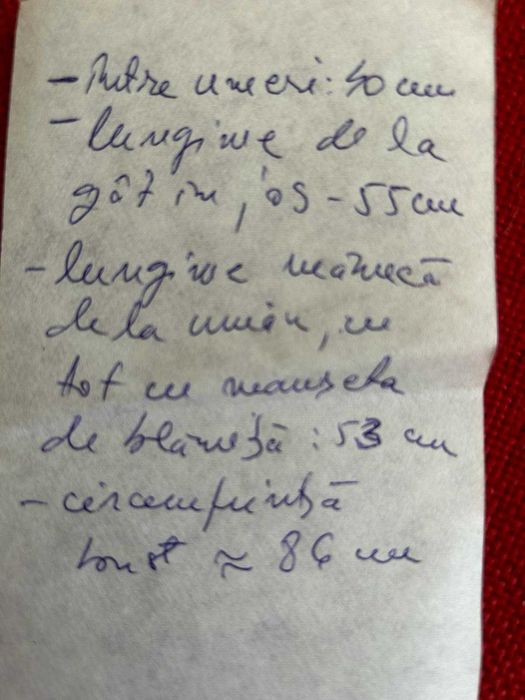 - între umeri: 40 cm
- lungime de la
gât în jos - 55 cm
- lungime mânecă
de la umăr, cu
tot cu manșeta
de blăniță : 53 cm
- circumferință
bust ≈ 86 cm